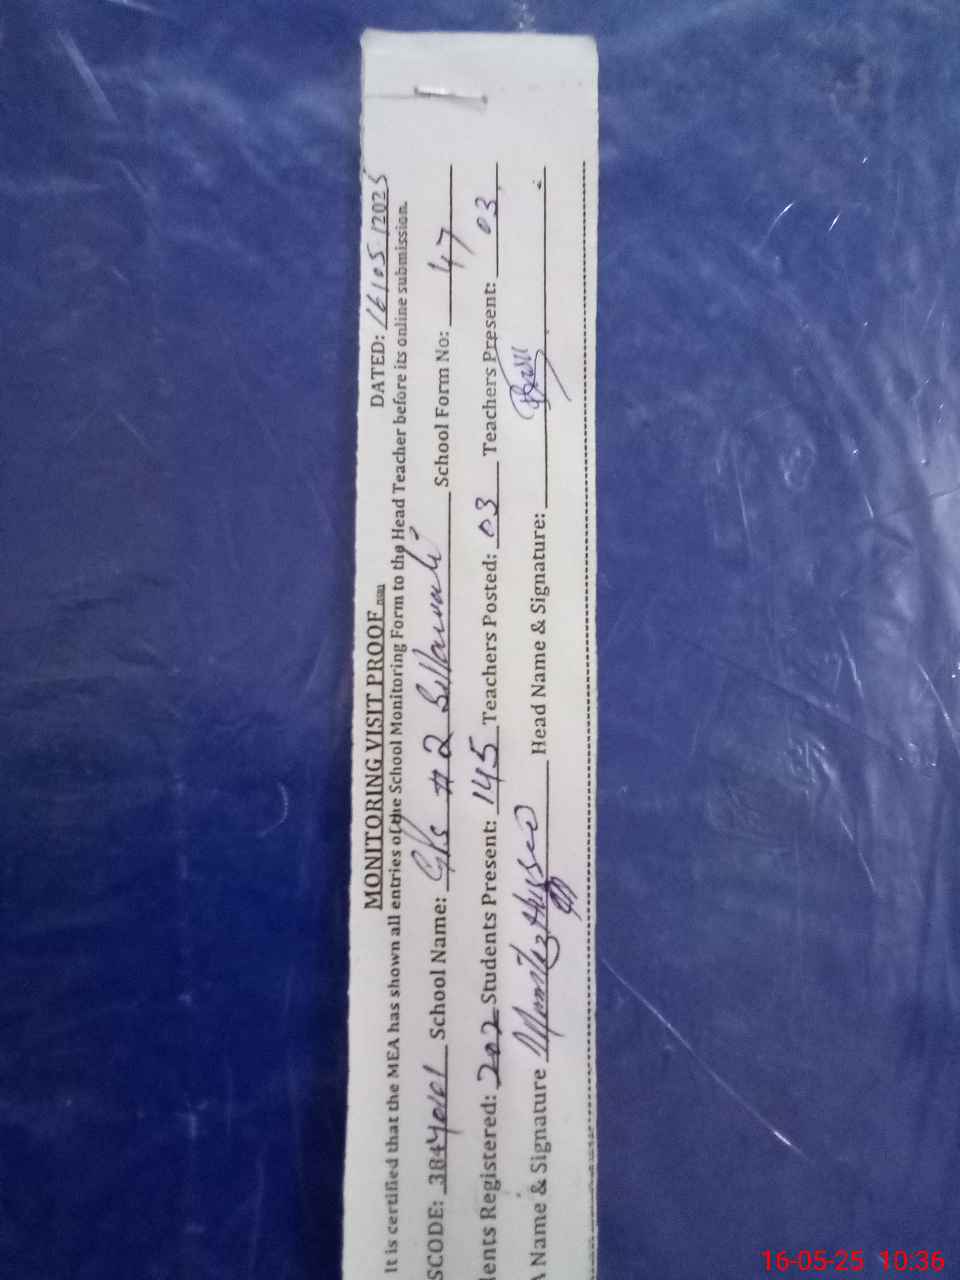 MONITORING VISIT PROOF DATED: 16/05/2025
It is certified that the MEA has shown all entries of the School Monitoring Form to the Head Teacher before its online submission.
SCODE: 38440101 School Name: GPS # 2 School Form No: 47
dents Registered: 202 Students Present: 145 Teachers Posted: 03 Teachers Present: 03
A Name & Signature Head Name & Signature:
16-05-25 10:36